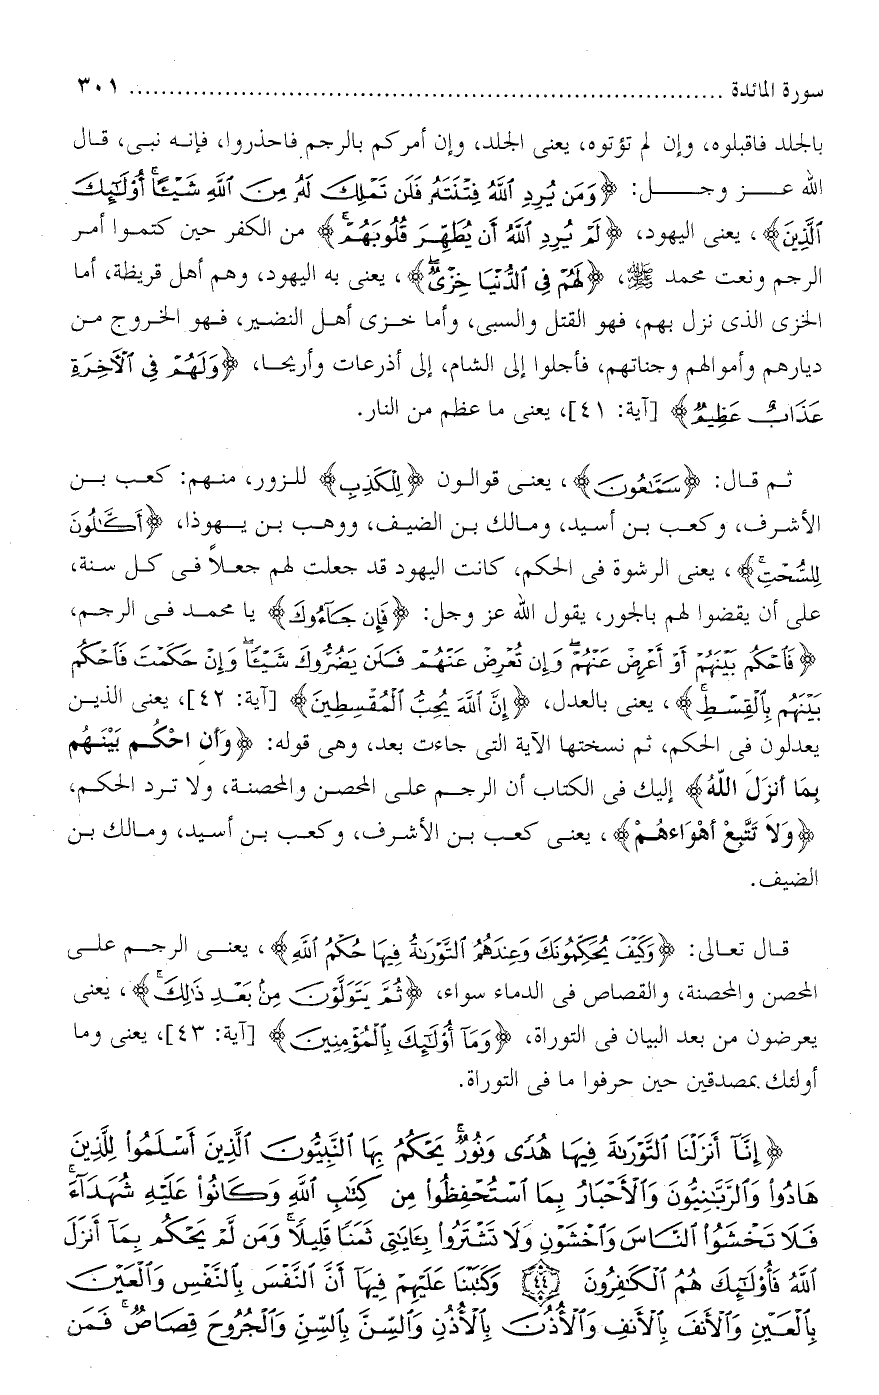 سورة المائدة ........................................................................ ٣٠١
بالجلد فاقبلوه، وإن لم تؤتوه، يعنى الجلد، وإن أمركم بالرجم فاحذروا، فإنه نبى، قال
الله عز وجل: ﴿وَمَن يُرِدِ ٱللَّهُ فِتْنَتَهُۥ فَلَن تَمْلِكَ لَهُۥ مِنَ ٱللَّهِ شَيْـًٔا ۚ أُو۟لَـٰٓئِكَ
ٱلَّذِينَ﴾، يعنى اليهود، ﴿لَمْ يُرِدِ ٱللَّهُ أَن يُطَهِّرَ قُلُوبَهُمْ ۚ﴾ من الكفر حين كتموا أمر
الرجم ونعت محمد ﷺ، ﴿لَهُمْ فِى ٱلدُّنْيَا خِزْىٌ ۖ﴾، يعنى به اليهود، وهم أهل قريظة، أما
الخزى الذى نزل بهم، فهو القتل والسبى، وأما خزى أهل النضير، فهو الخروج من
ديارهم وأموالهم وجناتهم، فأجلوا إلى الشام، إلى أذرعات وأريحا، ﴿وَلَهُمْ فِى ٱلْـَٔاخِرَةِ
عَذَابٌ عَظِيمٌ﴾ [آية: ٤١]، يعنى ما عظم من النار.
ثم قال: ﴿سَمَّـٰعُونَ﴾، يعنى قوالون ﴿لِلْكَذِبِ﴾ للزور، منهم: كعب بن
الأشرف، وكعب بن أسيد، ومالك بن الضيف، ووهب بن يهوذا، ﴿أَكَّـٰلُونَ
لِلسُّحْتِ ۚ﴾، يعنى الرشوة فى الحكم، كانت اليهود قد جعلت لهم جعلاً فى كل سنة،
على أن يقضوا لهم بالجور، يقول الله عز وجل: ﴿فَإِن جَآءُوكَ﴾ يا محمد فى الرجم،
﴿فَٱحْكُم بَيْنَهُمْ أَوْ أَعْرِضْ عَنْهُمْ ۖ وَإِن تُعْرِضْ عَنْهُمْ فَلَن يَضُرُّوكَ شَيْـًٔا ۖ وَإِنْ حَكَمْتَ فَٱحْكُم
بَيْنَهُم بِٱلْقِسْطِ ۚ﴾، يعنى بالعدل، ﴿إِنَّ ٱللَّهَ يُحِبُّ ٱلْمُقْسِطِينَ﴾ [آية: ٤٢]، يعنى الذين
يعدلون فى الحكم، ثم نسختها الآية التى جاءت بعد، وهى قوله: ﴿وَأَنِ احْكُم بَيْنَهُم
بِمَا أَنزَلَ اللَّهُ﴾ إليك فى الكتاب أن الرجم على المحصن والمحصنة، ولا ترد الحكم،
﴿وَلاَ تَتَّبِعْ أَهْوَاءهُمْ﴾، يعنى كعب بن الأشرف، وكعب بن أسيد، ومالك بن
الضيف.
قال تعالى: ﴿وَكَيْفَ يُحَكِّمُونَكَ وَعِندَهُمُ ٱلتَّوْرَىٰةُ فِيهَا حُكْمُ ٱللَّهِ﴾، يعنى الرجم على
المحصن والمحصنة، والقصاص فى الدماء سواء، ﴿ثُمَّ يَتَوَلَّوْنَ مِنۢ بَعْدِ ذَٰلِكَ ۚ﴾، يعنى
يعرضون من بعد البيان فى التوراة، ﴿وَمَآ أُو۟لَـٰٓئِكَ بِٱلْمُؤْمِنِينَ﴾ [آية: ٤٣]، يعنى وما
أولئك بمصدقين حين حرفوا ما فى التوراة.
﴿إِنَّآ أَنزَلْنَا ٱلتَّوْرَىٰةَ فِيهَا هُدًى وَنُورٌ ۚ يَحْكُمُ بِهَا ٱلنَّبِيُّونَ ٱلَّذِينَ أَسْلَمُوا۟ لِلَّذِينَ
هَادُوا۟ وَٱلرَّبَّـٰنِيُّونَ وَٱلْأَحْبَارُ بِمَا ٱسْتُحْفِظُوا۟ مِن كِتَـٰبِ ٱللَّهِ وَكَانُوا۟ عَلَيْهِ شُهَدَآءَ ۚ
فَلَا تَخْشَوُا۟ ٱلنَّاسَ وَٱخْشَوْنِ وَلَا تَشْتَرُوا۟ بِـَٔايَـٰتِى ثَمَنًا قَلِيلًا ۚ وَمَن لَّمْ يَحْكُم بِمَآ أَنزَلَ
ٱللَّهُ فَأُو۟لَـٰٓئِكَ هُمُ ٱلْكَـٰفِرُونَ ٤٤ وَكَتَبْنَا عَلَيْهِمْ فِيهَآ أَنَّ ٱلنَّفْسَ بِٱلنَّفْسِ وَٱلْعَيْنَ
بِٱلْعَيْنِ وَٱلْأَنفَ بِٱلْأَنفِ وَٱلْأُذُنَ بِٱلْأُذُنِ وَٱلسِّنَّ بِٱلسِّنِّ وَٱلْجُرُوحَ قِصَاصٌ ۚ فَمَن